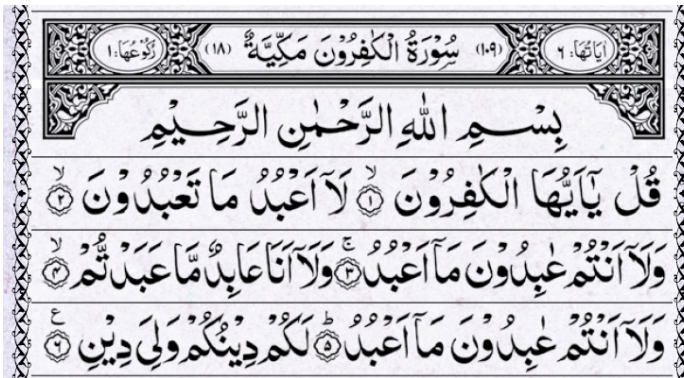 اٰیَاتُهَا: ٦ (١٠٩) سُوْرَةُ الْكٰفِرُوْنَ مَكِّيَّةٌ (١٨) رُكُوْعُهَا: ١
بِسْمِ اللّٰهِ الرَّحْمٰنِ الرَّحِيْمِ
قُلْ يٰۤاَيُّهَا الْكٰفِرُوْنَ ۙ﴿١﴾ لَاۤ اَعْبُدُ مَا تَعْبُدُوْنَ ۙ﴿٢﴾
وَلَاۤ اَنْتُمْ عٰبِدُوْنَ مَاۤ اَعْبُدُ ۚ﴿٣﴾ وَلَاۤ اَنَا عَابِدٌ مَّا عَبَدْتُّمْ ۙ﴿٤﴾
وَلَاۤ اَنْتُمْ عٰبِدُوْنَ مَاۤ اَعْبُدُ ؕ﴿٥﴾ لَكُمْ دِيْنُكُمْ وَلِيَ دِيْنِ ﴿٦﴾ ع